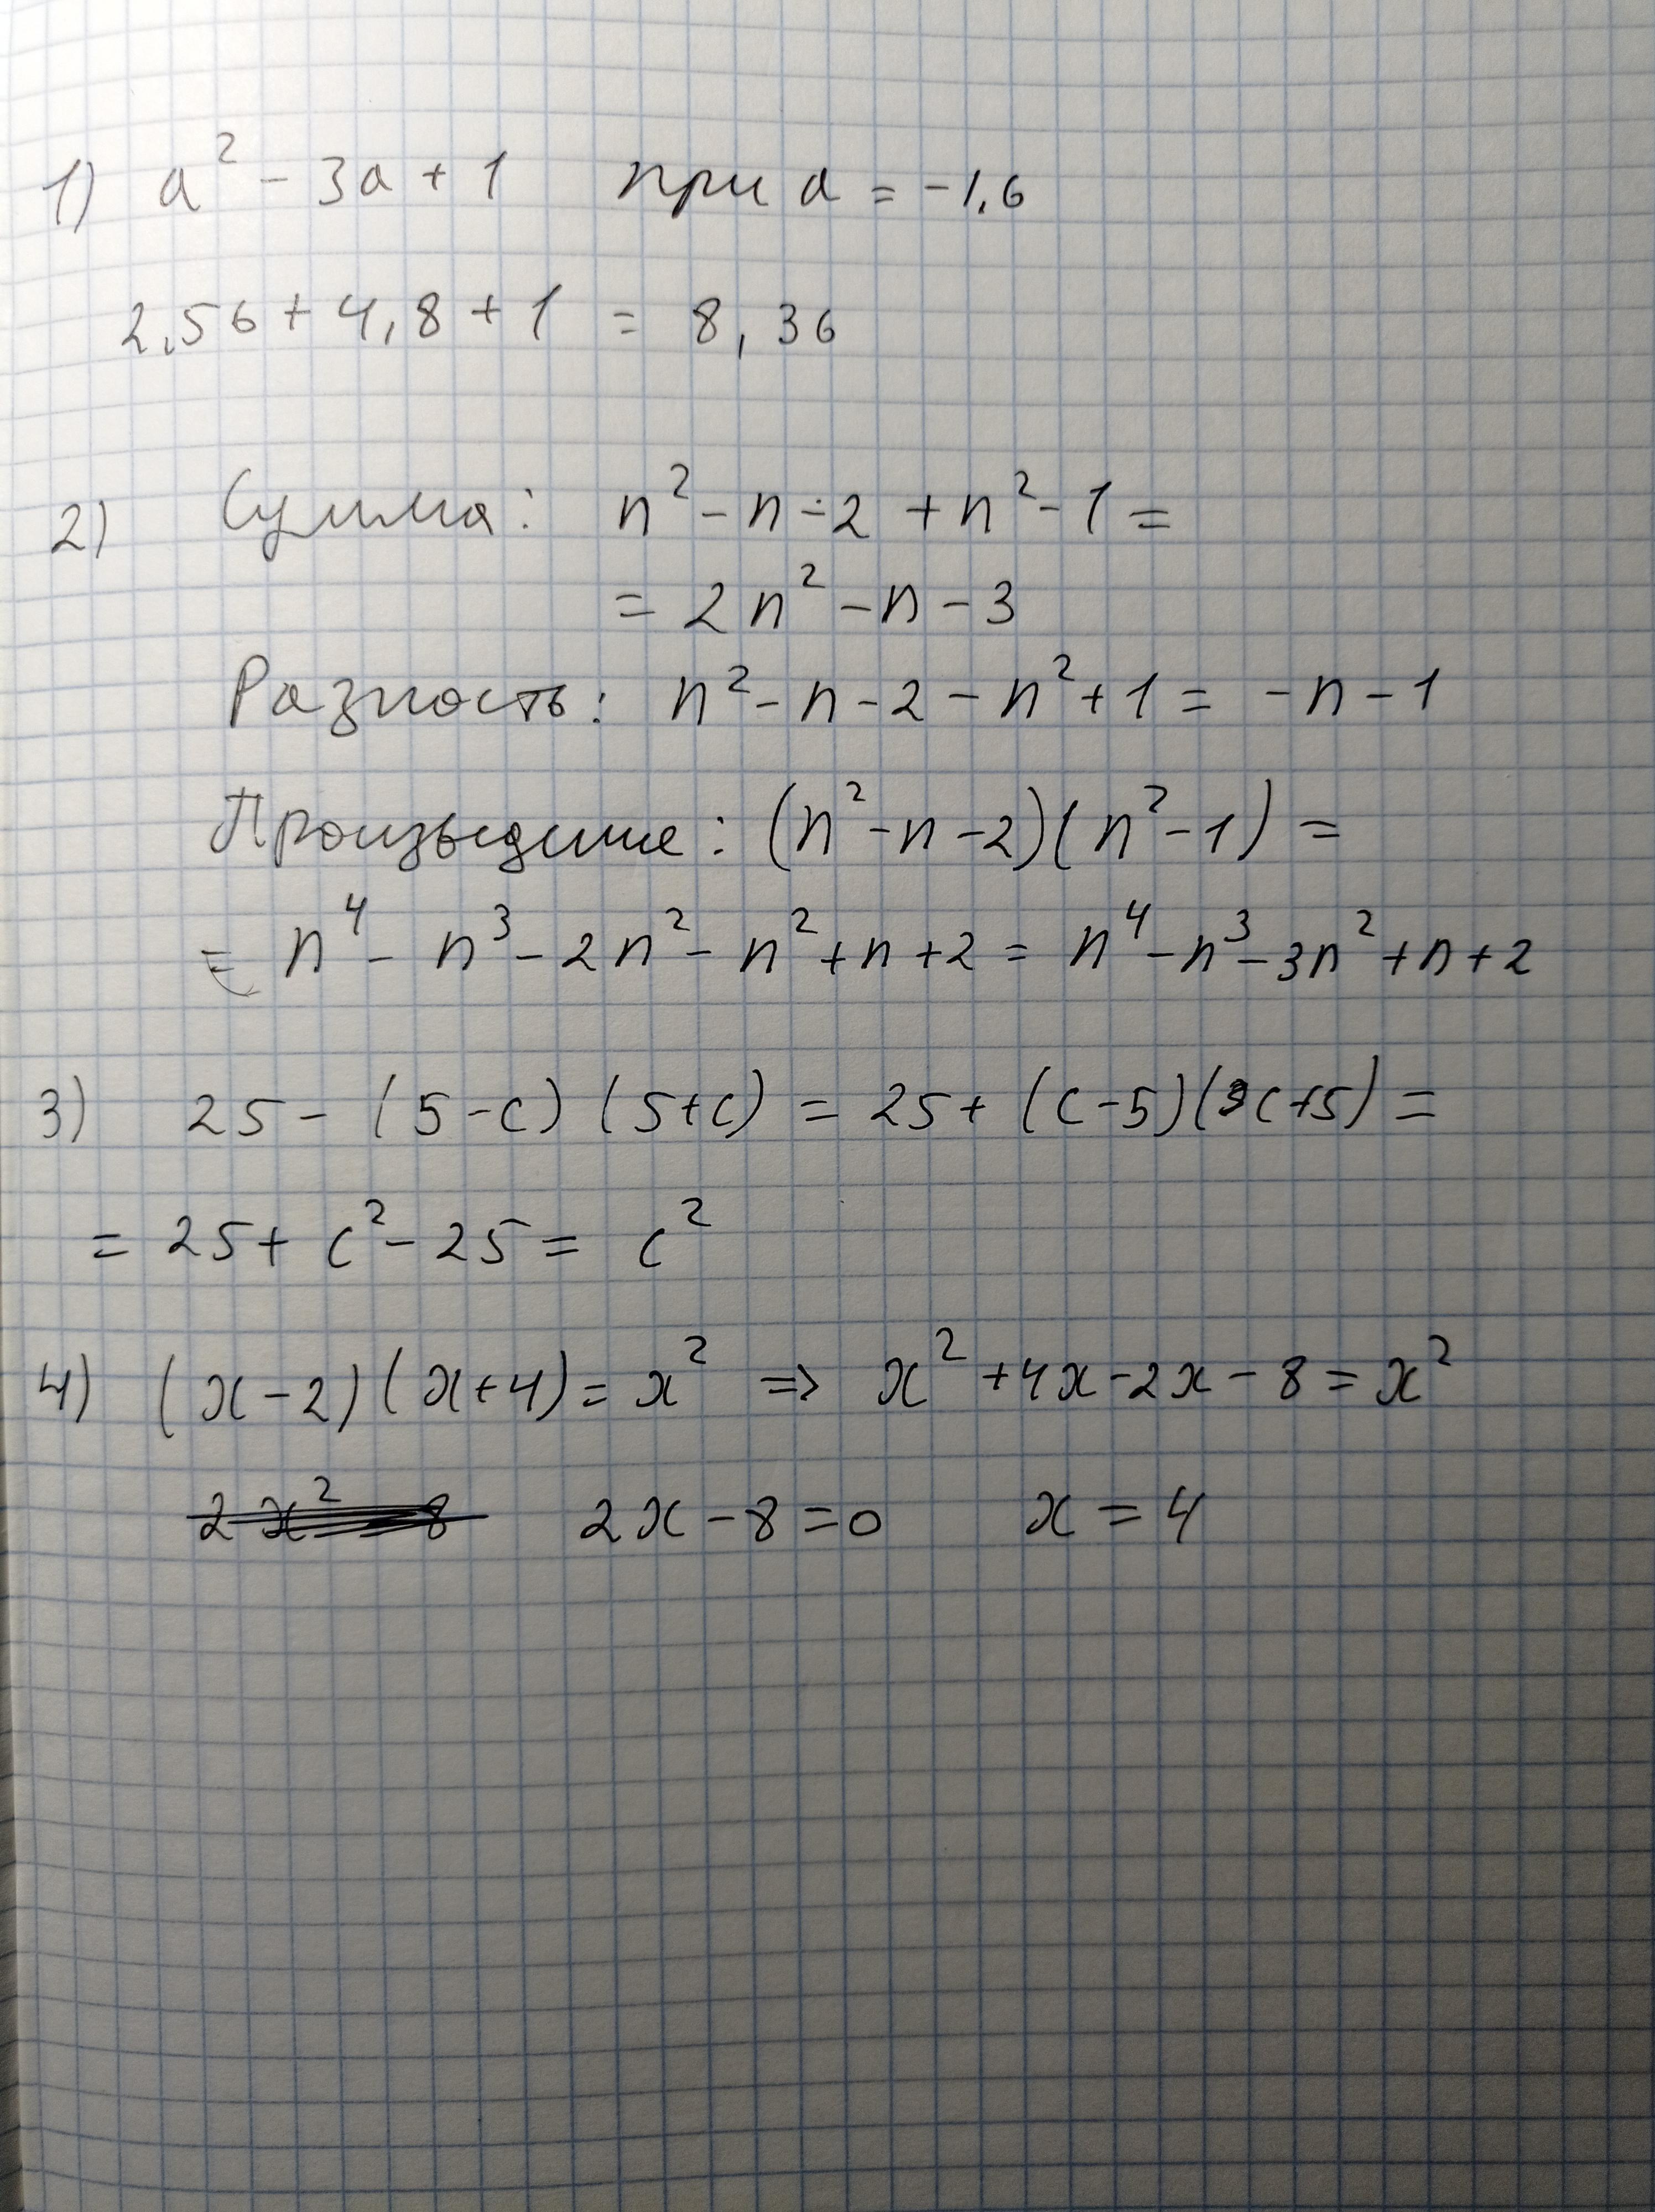 1) a² - 3a + 1 при a = -1,6
2,56 + 4,8 + 1 = 8,36
2) Сумма: n² - n - 2 + n² - 1 =
= 2n² - n - 3
Разность: n² - n - 2 - n² + 1 = -n - 1
Произведение: (n² - n - 2)(n² - 1) =
= n⁴ - n³ - 2n² - n² + n + 2 = n⁴ - n³ - 3n² + n + 2
3) 25 - (5 - c)(5 + c) = 25 + (c - 5)(c + 5) =
= 25 + c² - 25 = c²
4) (x - 2)(x + 4) = x² => x² + 4x - 2x - 8 = x²
2x - 8 = 0 x = 4